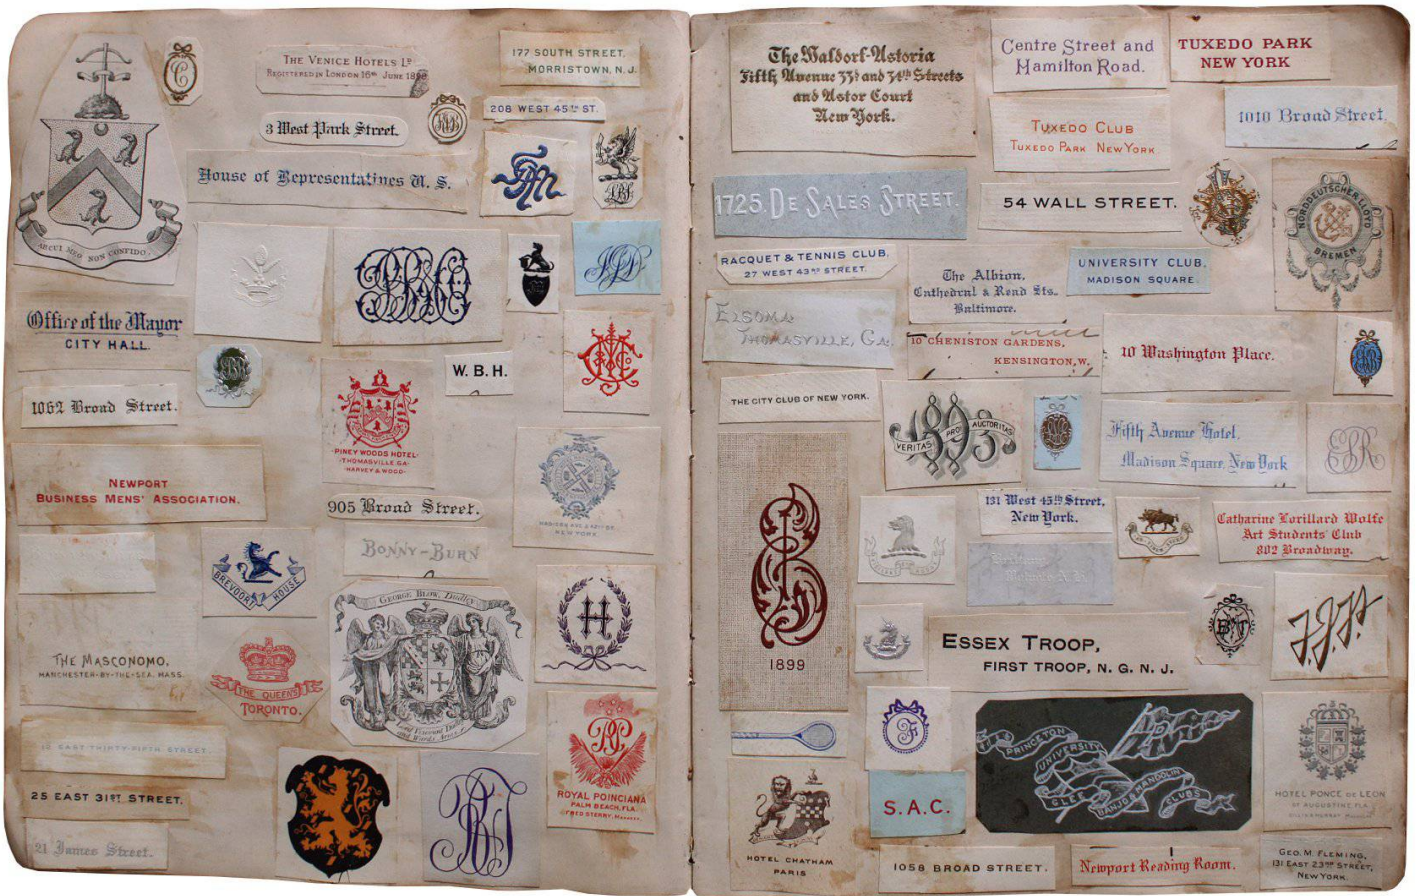 C
THE VENICE HOTELS Lᴰ
REGISTERED IN LONDON 16ᵀᴴ JUNE
177 SOUTH STREET,
MORRISTOWN, N.J.
3 West Park Street.
208 WEST 45ᵀᴴ ST.
House of Representatines U. S.
NON CONFIDO.
Office of the Mayor
CITY HALL.
W.B.H.
1062 Broad Street.
PINEY WOODS HOTEL
THOMASVILLE GA
HARVEY & WOOD
NEWPORT
BUSINESS MENS' ASSOCIATION.
905 Broad Street.
NEW YORK.
BONNY-BURN
BREVOORT HOUSE
GEORGE BLOW, Dudley
H
THE MASCONOMO,
MANCHESTER-BY-THE-SEA, MASS.
THE QUEENS
TORONTO.
EAST THIRTY-FIFTH STREET.
ROYAL POINCIANA
PALM BEACH, FLA.
FRED STERRY, Manager.
25 EAST 31ˢᵀ STREET.
21 James Street.
The Waldorf-Astoria
Fifth Avenue 33ᵈ and 34ᵗʰ Streets
and Astor Court
New York.
Centre Street and
Hamilton Road.
TUXEDO PARK
NEW YORK
TUXEDO CLUB
TUXEDO PARK NEW YORK.
1010 Broad Street.
1725 DE SALES STREET.
54 WALL STREET.
NORDDEUTSCHER LLOYD
BREMEN
RACQUET & TENNIS CLUB.
27 WEST 43ᴿᴰ STREET.
The Albion,
Cathedral & Read Sts.
Baltimore.
UNIVERSITY CLUB.
MADISON SQUARE.
ELSOMA
THOMASVILLE, GA.
10 CHENISTON GARDENS,
KENSINGTON, W.
10 Washington Place.
THE CITY CLUB OF NEW YORK.
1893
VERITAS PRO AUCTORITAS
Fifth Avenue Hotel,
Madison Square, New York
131 West 45ᵗʰ Street,
New York.
Catharine Lorillard Wolfe
Art Students' Club
802 Broadway.
1899
ESSEX TROOP,
FIRST TROOP, N. G. N. J.
PRINCETON
UNIVERSITY
GLEE BANJO & MANDOLIN
CLUBS
S.A.C.
HOTEL PONCE DE LEON
ST AUGUSTINE FLA.
HOTEL CHATHAM
PARIS
1058 BROAD STREET.
Newport Reading Room.
GEO. M. FLEMING,
131 EAST 23ᴿᴰ STREET,
NEW YORK.